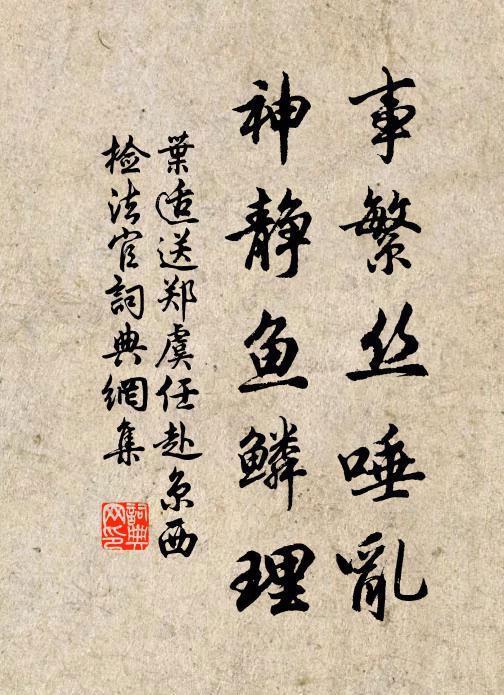 事繁丝唾乱
神静鱼鳞理
葉适送郑虞任赴京西
检法官詞典網集
詞典
网印